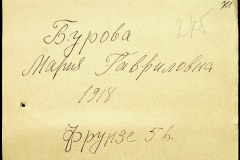 215
Бурова
Мария Гавриловна
1918
Фрунзе 5 в.